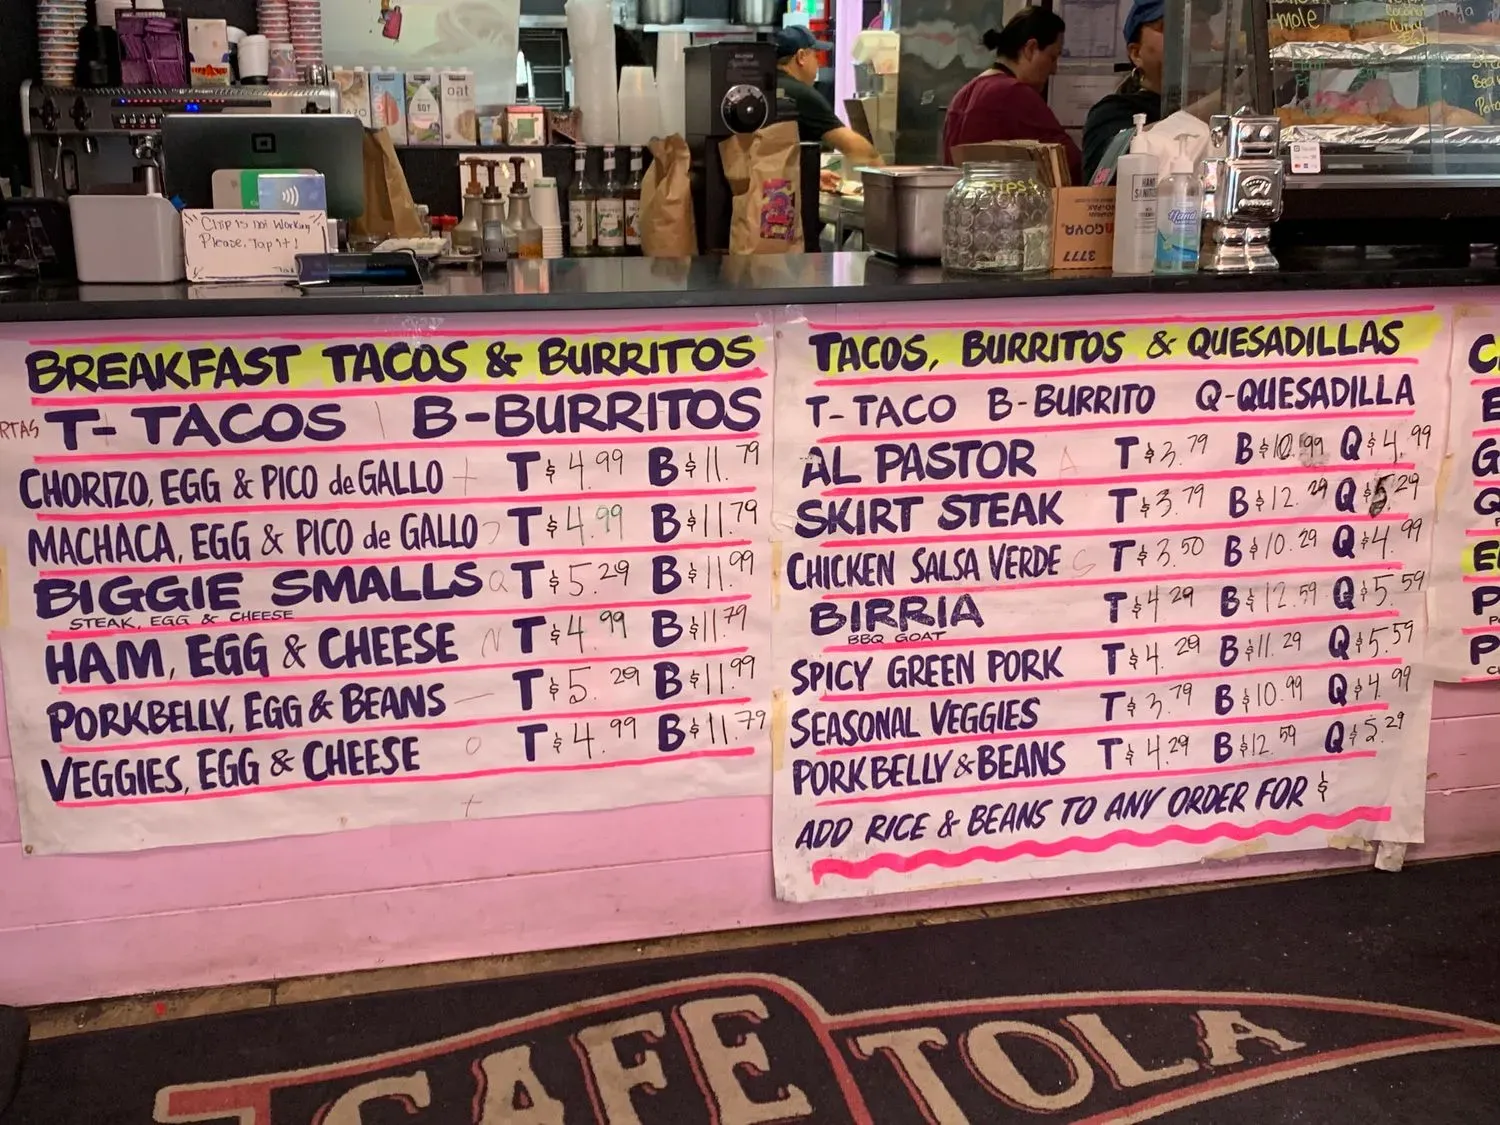 mole
SOY
oat
Chip is not working
Please, Tap it!
Tips
GOYA
3777
HAND
BREAKFAST TACOS & BURRITOS
T- TACOS B-BURRITOS
CHORIZO, EGG & PICO de GALLO T $4.99 B $11.79
MACHACA, EGG & PICO de GALLO T $4.99 B $11.79
BIGGIE SMALLS T $5.29 B $11.99
STEAK, EGG & CHEESE
HAM, EGG & CHEESE T $4.99 B $11.79
PORKBELLY, EGG & BEANS T $5.29 B $11.99
VEGGIES, EGG & CHEESE T $4.99 B $11.79
TACOS, BURRITOS & QUESADILLAS
T-TACO B-BURRITO Q-QUESADILLA
AL PASTOR T $3.79 B $10.99 Q $4.99
SKIRT STEAK T $3.79 B $12.29 Q $5.29
CHICKEN SALSA VERDE T $3.50 B $10.29 Q $4.99
BIRRIA T $4.29 B $12.59 Q $5.59
BBQ GOAT
SPICY GREEN PORK T $4.29 B $11.29 Q $5.59
SEASONAL VEGGIES T $3.79 B $10.99 Q $4.99
PORKBELLY & BEANS T $4.29 B $12.59 Q $5.29
ADD RICE & BEANS TO ANY ORDER FOR $
CAFE TOLA